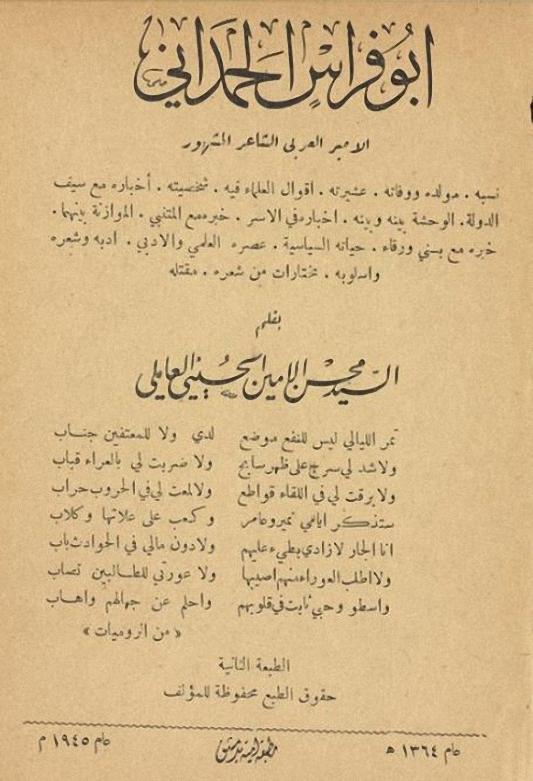 ابو فراس الحمداني
الامير العربي الشاعر المشهور
نسبه . مولده ووفاته . عشيرته . اقوال العلماء فيه . شخصيته . أخباره مع سيف
الدولة . الوحشة بينه وبينه . اخباره في الاسر . خبره مع المتنبي . الموازنة بينهما .
خبره مع بني ورقاء . حياته السياسية . عصره العلمي والادبي . ادبه وشعره
واسلوبه . مختارات من شعره . مقتله
بقلم
السيد محسن الامين الحسيني العاملي
تمر الليالي ليس للنفع موضع لدي ولا للمعتفين جناب
ولا شد لي سرج على ظهر سابح ولا ضربت لي بالعراء قباب
ولا برقت لي في اللقاء قواطع ولا لمعت لي في الحروب حراب
ستذكر ايامي نمير وعامر وكعب على علاتها وكلاب
انا الجار لا زادي بطيء عليهم ولا دون مالي في الحوادث باب
ولا اطلب العوراء منهم اصيبها ولا عورتي للطالبين تصاب
واسطو وحبي ثابت في قلوبهم واحلم عن جهالهم واهاب
« من الروميات »
الطبعة الثانية
حقوق الطبع محفوظة للمؤلف
عام ١٣٦٤ ه‍ بدمشق عام ١٩٤٥ م